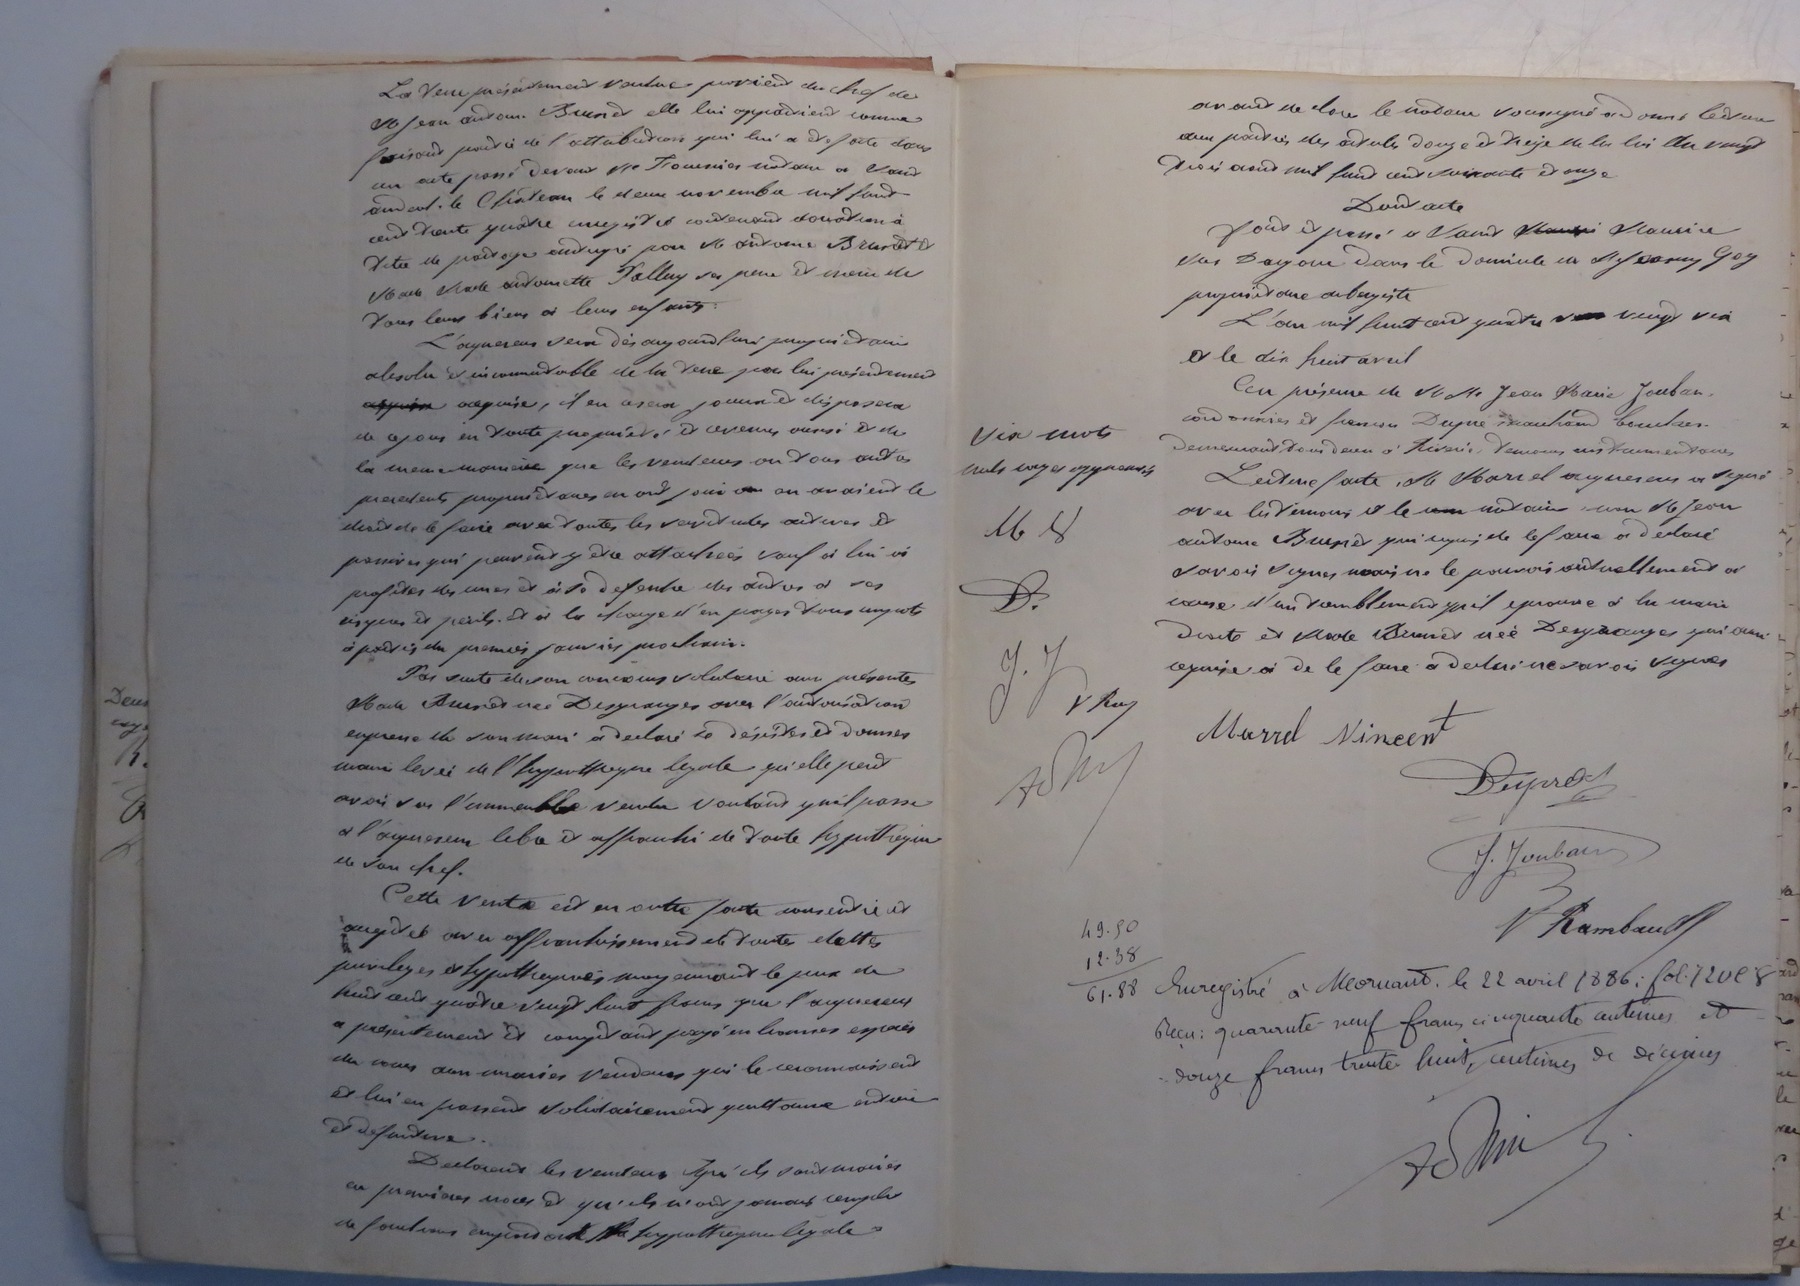 La Terre présentement vendue provient du chef de
M Jean antoine Brunet elle lui appartient comme
faisant partie de l'attribution qui lui a été faite dans
un acte passé devant Me Fournier notaire a Saint
andeol-le Chateau le deux novembre mil huit
cent trente quatre enregistré contenant donation à
titre de partage anticipé par M antoine Brunet et
Made antoinette ses pere et mere de
tous leurs biens à leurs enfants.
L'aquereur sera dès aujourdhui propriétaire
absolu et incommutable de la terre par lui présentement
acquise, il en usera jouira et disposera
de ce jour en toute propriété et revenus aussi et de
la meme manière que les vendeurs ou tous autres
precedents proprietaires en ont joui ou en avaient le
droit de le faire avec toutes les servitudes actives et
passives qui peuvent y être attachées sauf à lui à
profiter des unes et à se defendre des autres à ses
risques et perils. et à la charge d'en payer tous impots
à partir du premier janvier prochain.
Par suite de son concours volontaire aux présentes
Made Brunet née Desgranges avec l'autorisation
expresse de son mari a déclaré se désister et donner
main levée de l'hypothèque légale qu'elle peut
avoir sur l'immeuble vendu voulant qu'il passe
à l'aquereur libre et affranchi de toute hypothèque
de son chef.
Cette vente est en outre faite consentie et
acceptée avec affranchissement de toutes dettes
privilèges et hypothèques moyennant le prix de
huit cent quatre vingt huit francs que l'aquereur
a présentement et comptant payé en bonnes espèces
du cours aux mariés vendeurs qui le reconnaissent
et lui en passent solidairement quittance entière
et definitive.
Declarent les vendeurs qu'ils sont mariés
en premières noces et qu'ils n'ont jamais rempli
de fonctions emportant hypothèque légale
avant de clore le notaire soussigné a donné lecture
aux parties des articles douze et treize de la loi du vingt
trois aout mil huit cent soixante et onze
Dont acte
Fait et passé a Saint Maurice
sur Dargoire dans le domicile de M Goy
propriétaire aubergiste
L'an mil huit cent quatre vingt six
et le dix huit avril
En présence de M M. Jean Marie Jouban.
cordonnier et francois Dupré marchand boucher
demeurant tous deux à Riverie. temoins instrumentaires
Lecture faite, M Marrel aquereur a signé
avec les temoins et le notaire non M Jean
antoine Brunet qui requis de le faire a declaré
savoir signer mais ne le pouvoir actuellement à
cause d'un tremblement qu'il eprouve à la main
droite et Made Brunet née Desgranges qui aussi
requise de le faire a declaré ne savoir signer
Six mots
nuls rayés approuvés
M V
D.
J. J
V Ray
Marrel Vincent
Dupré
J. Jouban
V Rambaud
49.50
12.38
61.88
Enregistré à Mornant. le 22 avril 1886; fol. 72 Vo C 8
Reçu: quarante-neuf francs cinquante centimes et
douze francs trente huit, centimes de décimes